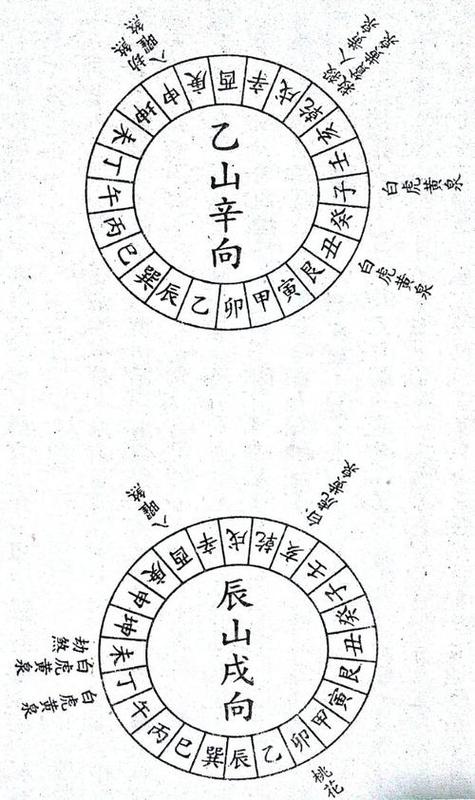 八曜煞
劫煞
救貧黄泉
殺人黄泉
白虎黄泉
白虎黄泉
乙山辛向
酉辛戌乾亥壬子癸丑艮寅甲卯乙辰巽巳丙午丁未坤申庚
八曜煞
白虎黄泉
劫煞
白虎黄泉
白虎黄泉
桃花
辰山戌向
戌乾亥壬子癸丑艮寅甲卯乙辰巽巳丙午丁未坤申庚酉辛